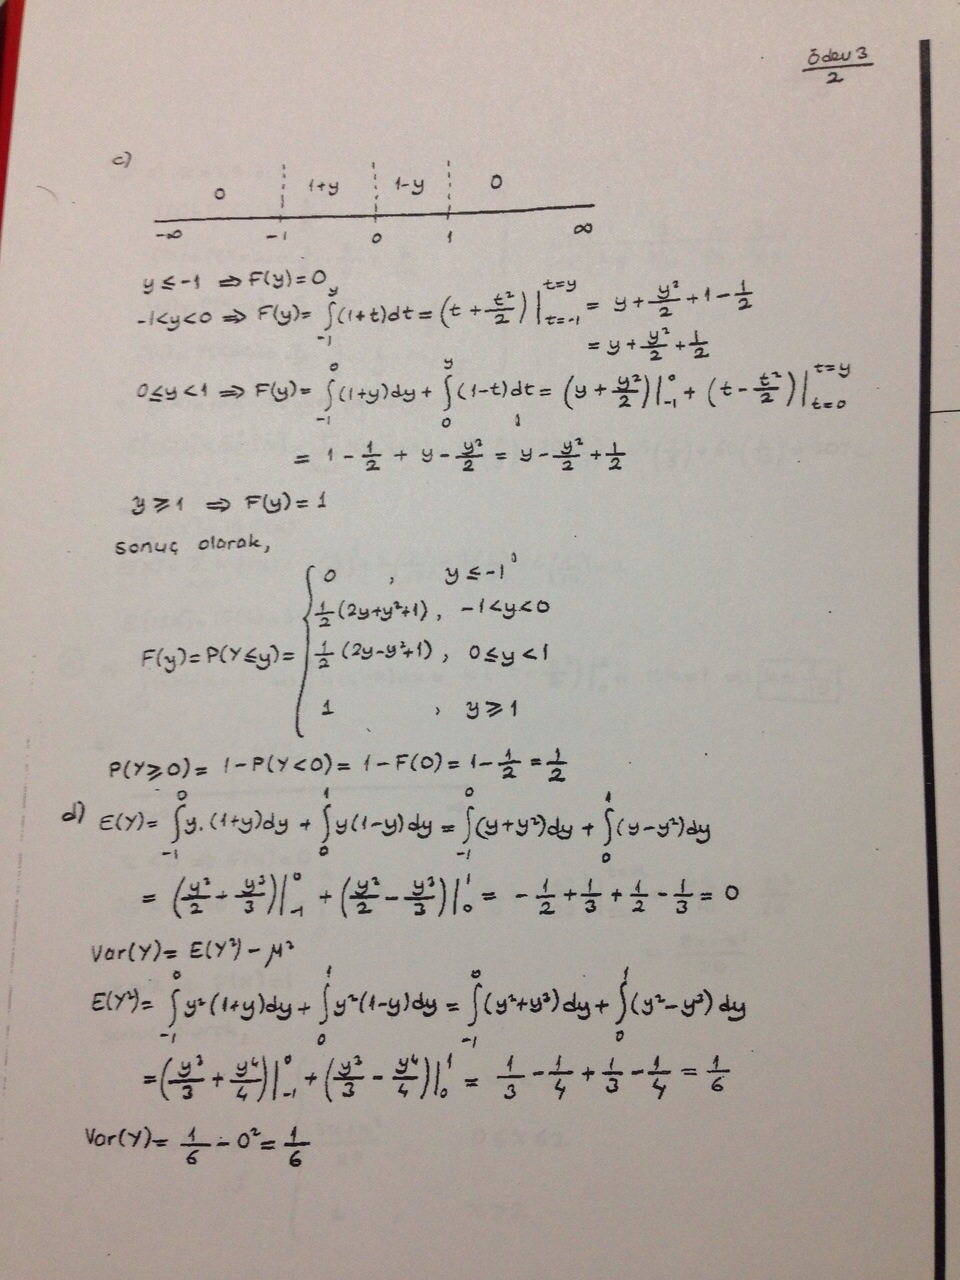 Ödev 3
2
c)
0 1+y 1-y 0
-∞ -1 0 1 ∞
y ≤ -1 ⇒ F(y) = 0
-1<y<0 ⇒ F(y) = ∫_{-1}^{y} (1+t)dt = (t + t²/2)|_{t=-1}^{t=y} = y + y²/2 + 1 - 1/2
= y + y²/2 + 1/2
0≤y<1 ⇒ F(y) = ∫_{-1}^{0} (1+y)dy + ∫_{0}^{y} (1-t)dt = (y + y²/2)|_{-1}^{0} + (t - t²/2)|_{t=0}^{t=y}
= 1 - 1/2 + y - y²/2 = y - y²/2 + 1/2
y ≥ 1 ⇒ F(y) = 1
sonuç olarak,
0 , y ≤ -1
1/2 (2y+y²+1) , -1<y<0
F(y) = P(Y≤y) = { 1/2 (2y-y²+1) , 0≤y<1
1 , y ≥ 1
P(Y≥0) = 1-P(Y<0) = 1-F(0) = 1 - 1/2 = 1/2
d) E(Y) = ∫_{-1}^{0} y.(1+y)dy + ∫_{0}^{1} y(1-y)dy = ∫_{-1}^{0} (y+y²)dy + ∫_{0}^{1} (y-y²)dy
= (y²/2 + y³/3)|_{-1}^{0} + (y²/2 - y³/3)|_{0}^{1} = -1/2 + 1/3 + 1/2 - 1/3 = 0
Var(Y) = E(Y²) - μ²
E(Y²) = ∫_{-1}^{0} y²(1+y)dy + ∫_{0}^{1} y²(1-y)dy = ∫_{-1}^{0} (y²+y³)dy + ∫_{0}^{1} (y²-y³)dy
= (y³/3 + y⁴/4)|_{-1}^{0} + (y³/3 - y⁴/4)|_{0}^{1} = 1/3 - 1/4 + 1/3 - 1/4 = 1/6
Var(Y) = 1/6 - 0² = 1/6